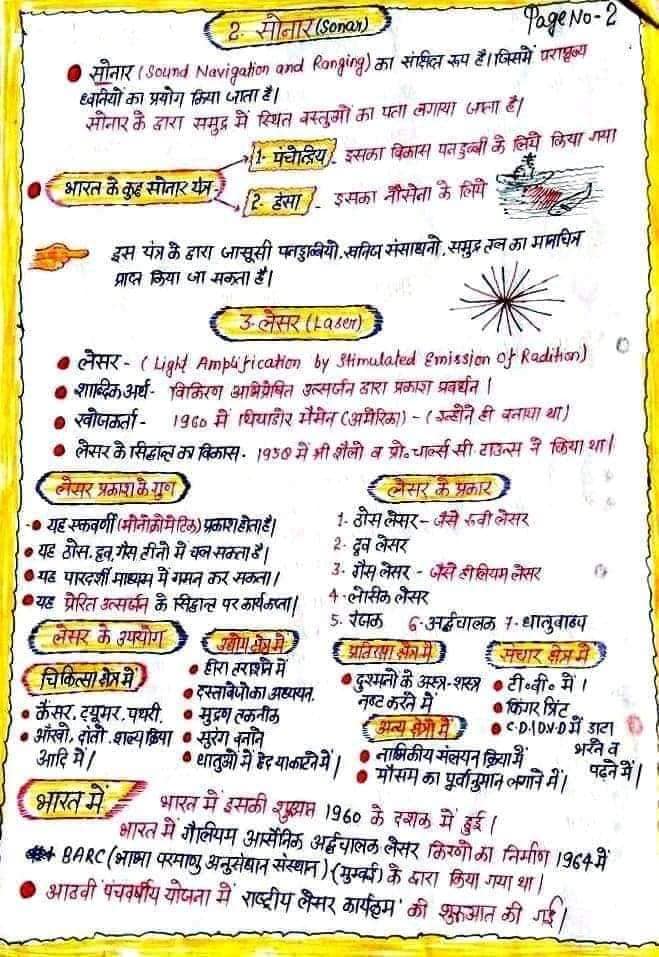 Page No - 2
2. सोनार (Sonar)
सोनार (Sound Navigation and Ranging) का संक्षिप्त रूप है। जिसमें पराश्रव्य
ध्वनियों का प्रयोग किया जाता है।
सोनार के द्वारा समुद्र में स्थित वस्तुओं का पता लगाया जाता है।
भारत के कुछ सोनार यंत्र
1. पंचेन्द्रिय - इसका विकास पनडुब्बी के लिये किया गया
2. हंसा - इसका नौसेना के लिये
इस यंत्र के द्वारा जासूसी पनडुब्बियो, खनिज संसाधनो, समुद्र तल का मानचित्र
प्राप्त किया जा सकता है।
3. लेसर (Laser)
लेसर - (Light Amplification by Stimulated Emission of Radition)
शाब्दिक अर्थ - विकिरण अभिप्रेषित उत्सर्जन द्वारा प्रकाश प्रवर्धन।
खोजकर्ता - 1960 में थियाडोर मैमेन (अमेरिका) - (उन्होंने ही बनाया था)
लेसर के सिद्धान्त का विकास - 1958 में श्री शैलो व प्रो० चार्ल्स सी. टाउन्स ने किया था।
लेसर प्रकाश के गुण
यह एकवर्णी (मोनोक्रोमेटिक) प्रकाश होता है।
यह ठोस, द्रव, गैस तीनो में चल सकता है।
यह पारदर्शी माध्यम में गमन कर सकता।
यह प्रेरित उत्सर्जन के सिद्धान्त पर कार्यकरता।
लेसर के प्रकार
1. ठोस लेसर - जैसे रूबी लेसर
2. द्रव लेसर
3. गैस लेसर - जैसे हीलियम लेसर
4. लेसिक लेसर
5. रंजक 6. अर्द्धचालक 7. धातुवाष्प
लेसर के उपयोग
चिकित्सा क्षेत्र में
कैंसर, ट्यूमर, पथरी
आँखो, दांतो, शल्य क्रिया
आदि में।
उद्योग क्षेत्र में
हीरा तराशने में
दस्तावेधो का अध्ययन
मुद्रण तकनीक
सुरंग बनाने
धातुओं में छेद या काटने में।
प्रतिरक्षा क्षेत्र में
दुश्मनों के अस्त्र-शस्त्र
नष्ट करने में
अन्य क्षेत्रों में
नाभिकीय संलयन क्रिया में
मौसम का पूर्वानुमान लगाने में।
संचार क्षेत्र में
टी. वी. में।
फिंगर प्रिंट
C.D/D.V.D में डाटा
भरने व
पढ़ने में।
भारत में
भारत में इसकी शुरुआत 1960 के दशक में हुई।
भारत में गैलियम आर्सेनिक अर्द्धचालक लेसर किरणो का निर्माण 1964 में
BARC (भाभा परमाणु अनुसंधान संस्थान) (मुम्बई) के द्वारा किया गया था।
आठवी पंचवर्षीय योजना में 'राष्ट्रीय लेसर कार्यक्रम' की शुरुआत की गई।